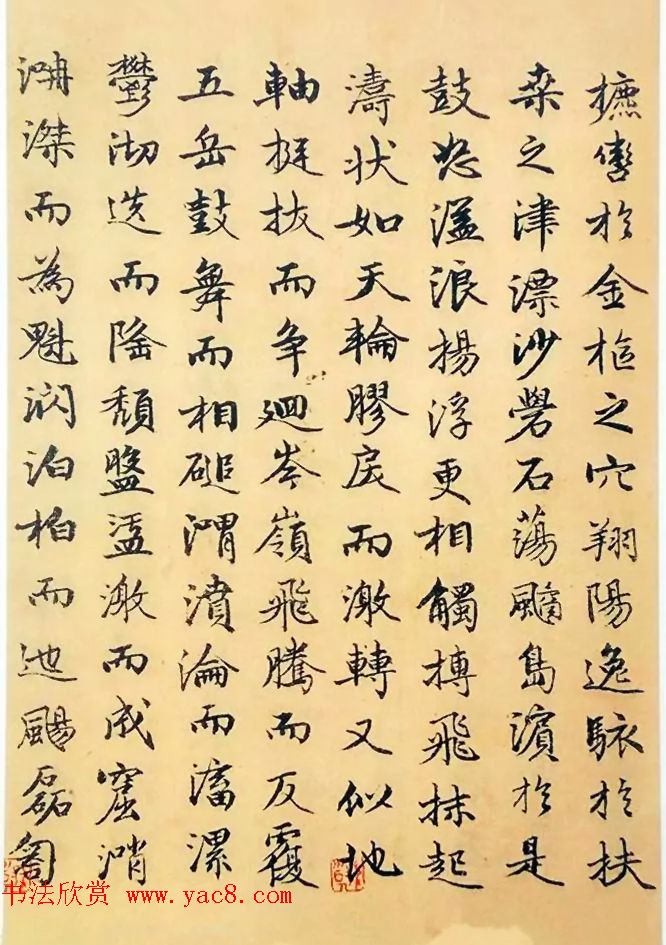 摭轡扵金樞之穴翔陽逸駭扵扶
桒之津漂沙礐石蕩䬍島濱扵是
鼓怒溢浪揚浮更相觸搏飛沫起
濤状如天輪膠戾而激轉又似地
軸挺拔而争迴岑嶺飛騰而反覆
五岳鼓舞而相磓渭濆淪而滀漯
鬱沏迭而隆頹盤盓激而成窟消
滐而為魁㴸泊柏而迆颺磊匒
书法欣赏 www.yac8.com